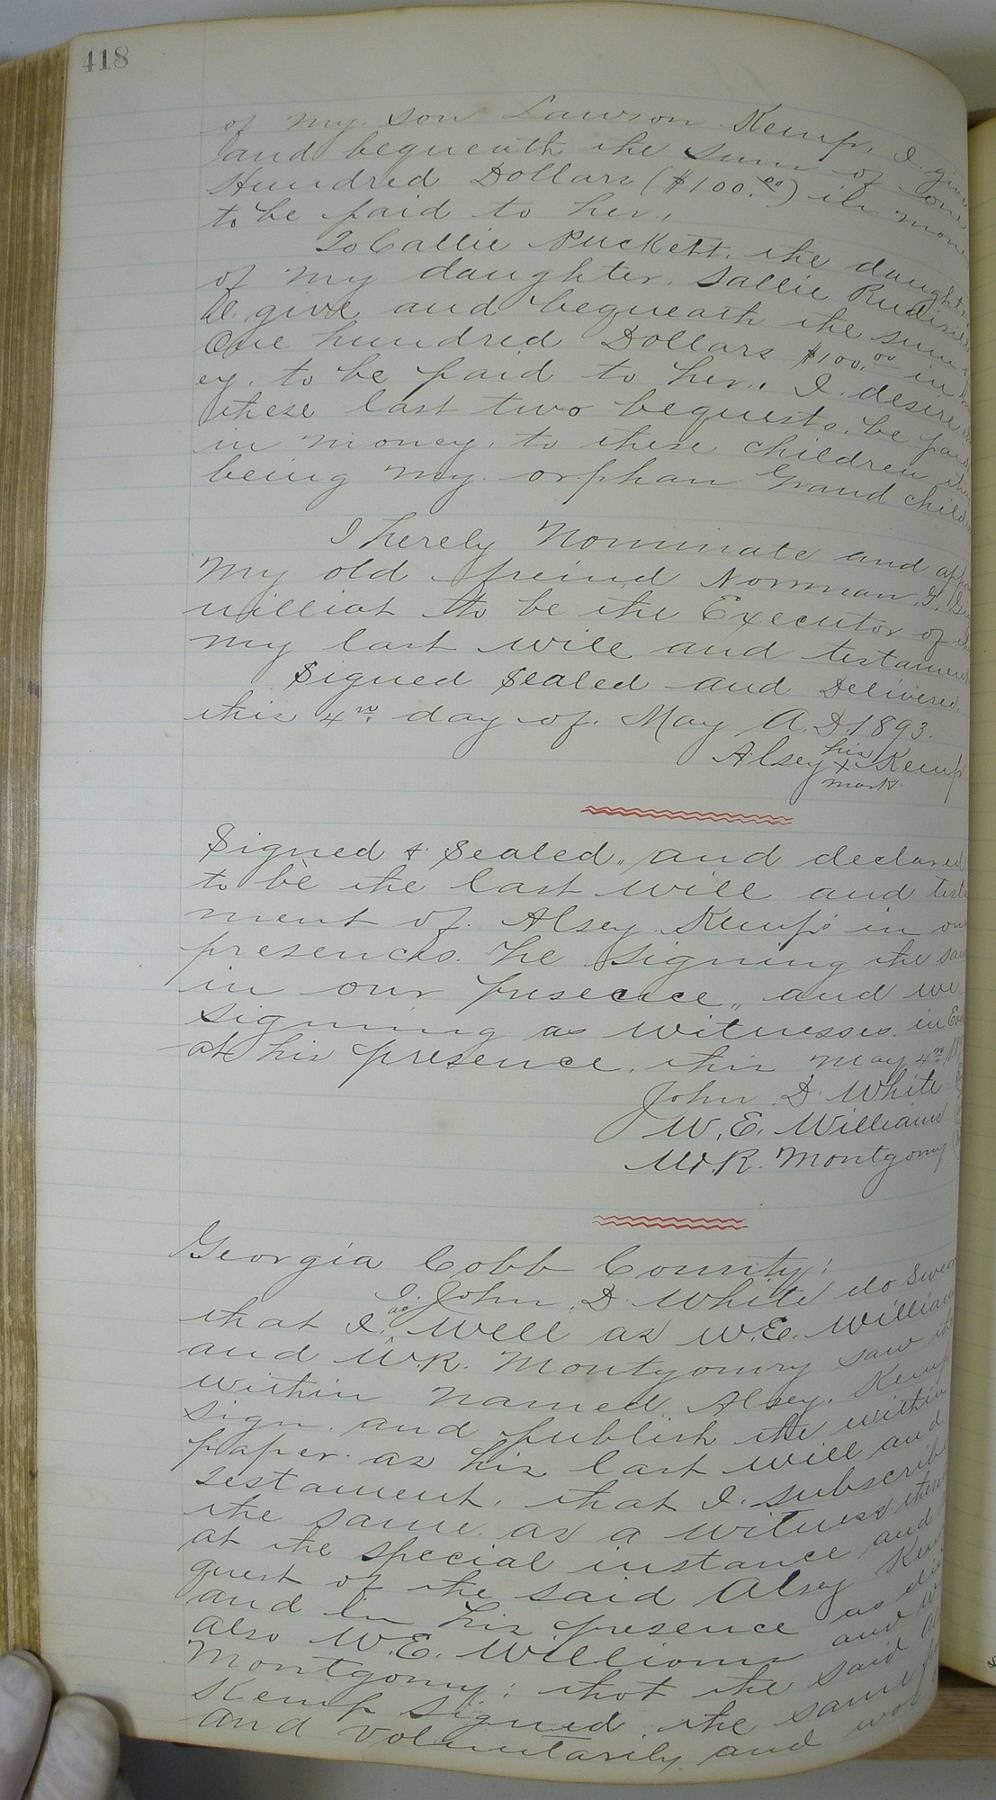 418
of my son Lawson Kemp, I give
and bequeath the sum of one
Hundred Dollars ($100.00) in mon
to be paid to her.
To Callie Puckett, the daught
of my daughter, Sallie
I give and bequeath the sum
One hundred Dollars $100.00 in
ey, to be paid to her, I desire
these last two bequests, be paid
in money, to these children
being my orphan Grand child
I hereby Nominate and app
my old freind Norman
to be the Executor of
my last will and testament
Signed Sealed and Delivered
this 4th day of May A.D. 1893.
Alsey his x mark Kemp
Signed & Sealed, and declared
to be the last will and testa
ment of Alsey Kemp in our
presences. he signing the same
in our presence, and we
signing as witnesses in
at his presence, this May 4th
John D. White
W. E. Williams
W. R. Montgomy
Georgia Cobb County:
I. John D. White do swear
that I, as well as W. E. William
and W. R. Montgomry saw the
within named Alsey Kemp
sign and publish the within
paper as his last will and
testament, that I subscrib
the same as a witness
at the special instance and
quest of the said Alsey Kem
and in his presence as did
also W. E. Williams and W
Montgomy; that the said Al
Kemp signed the same
and voluntarily and